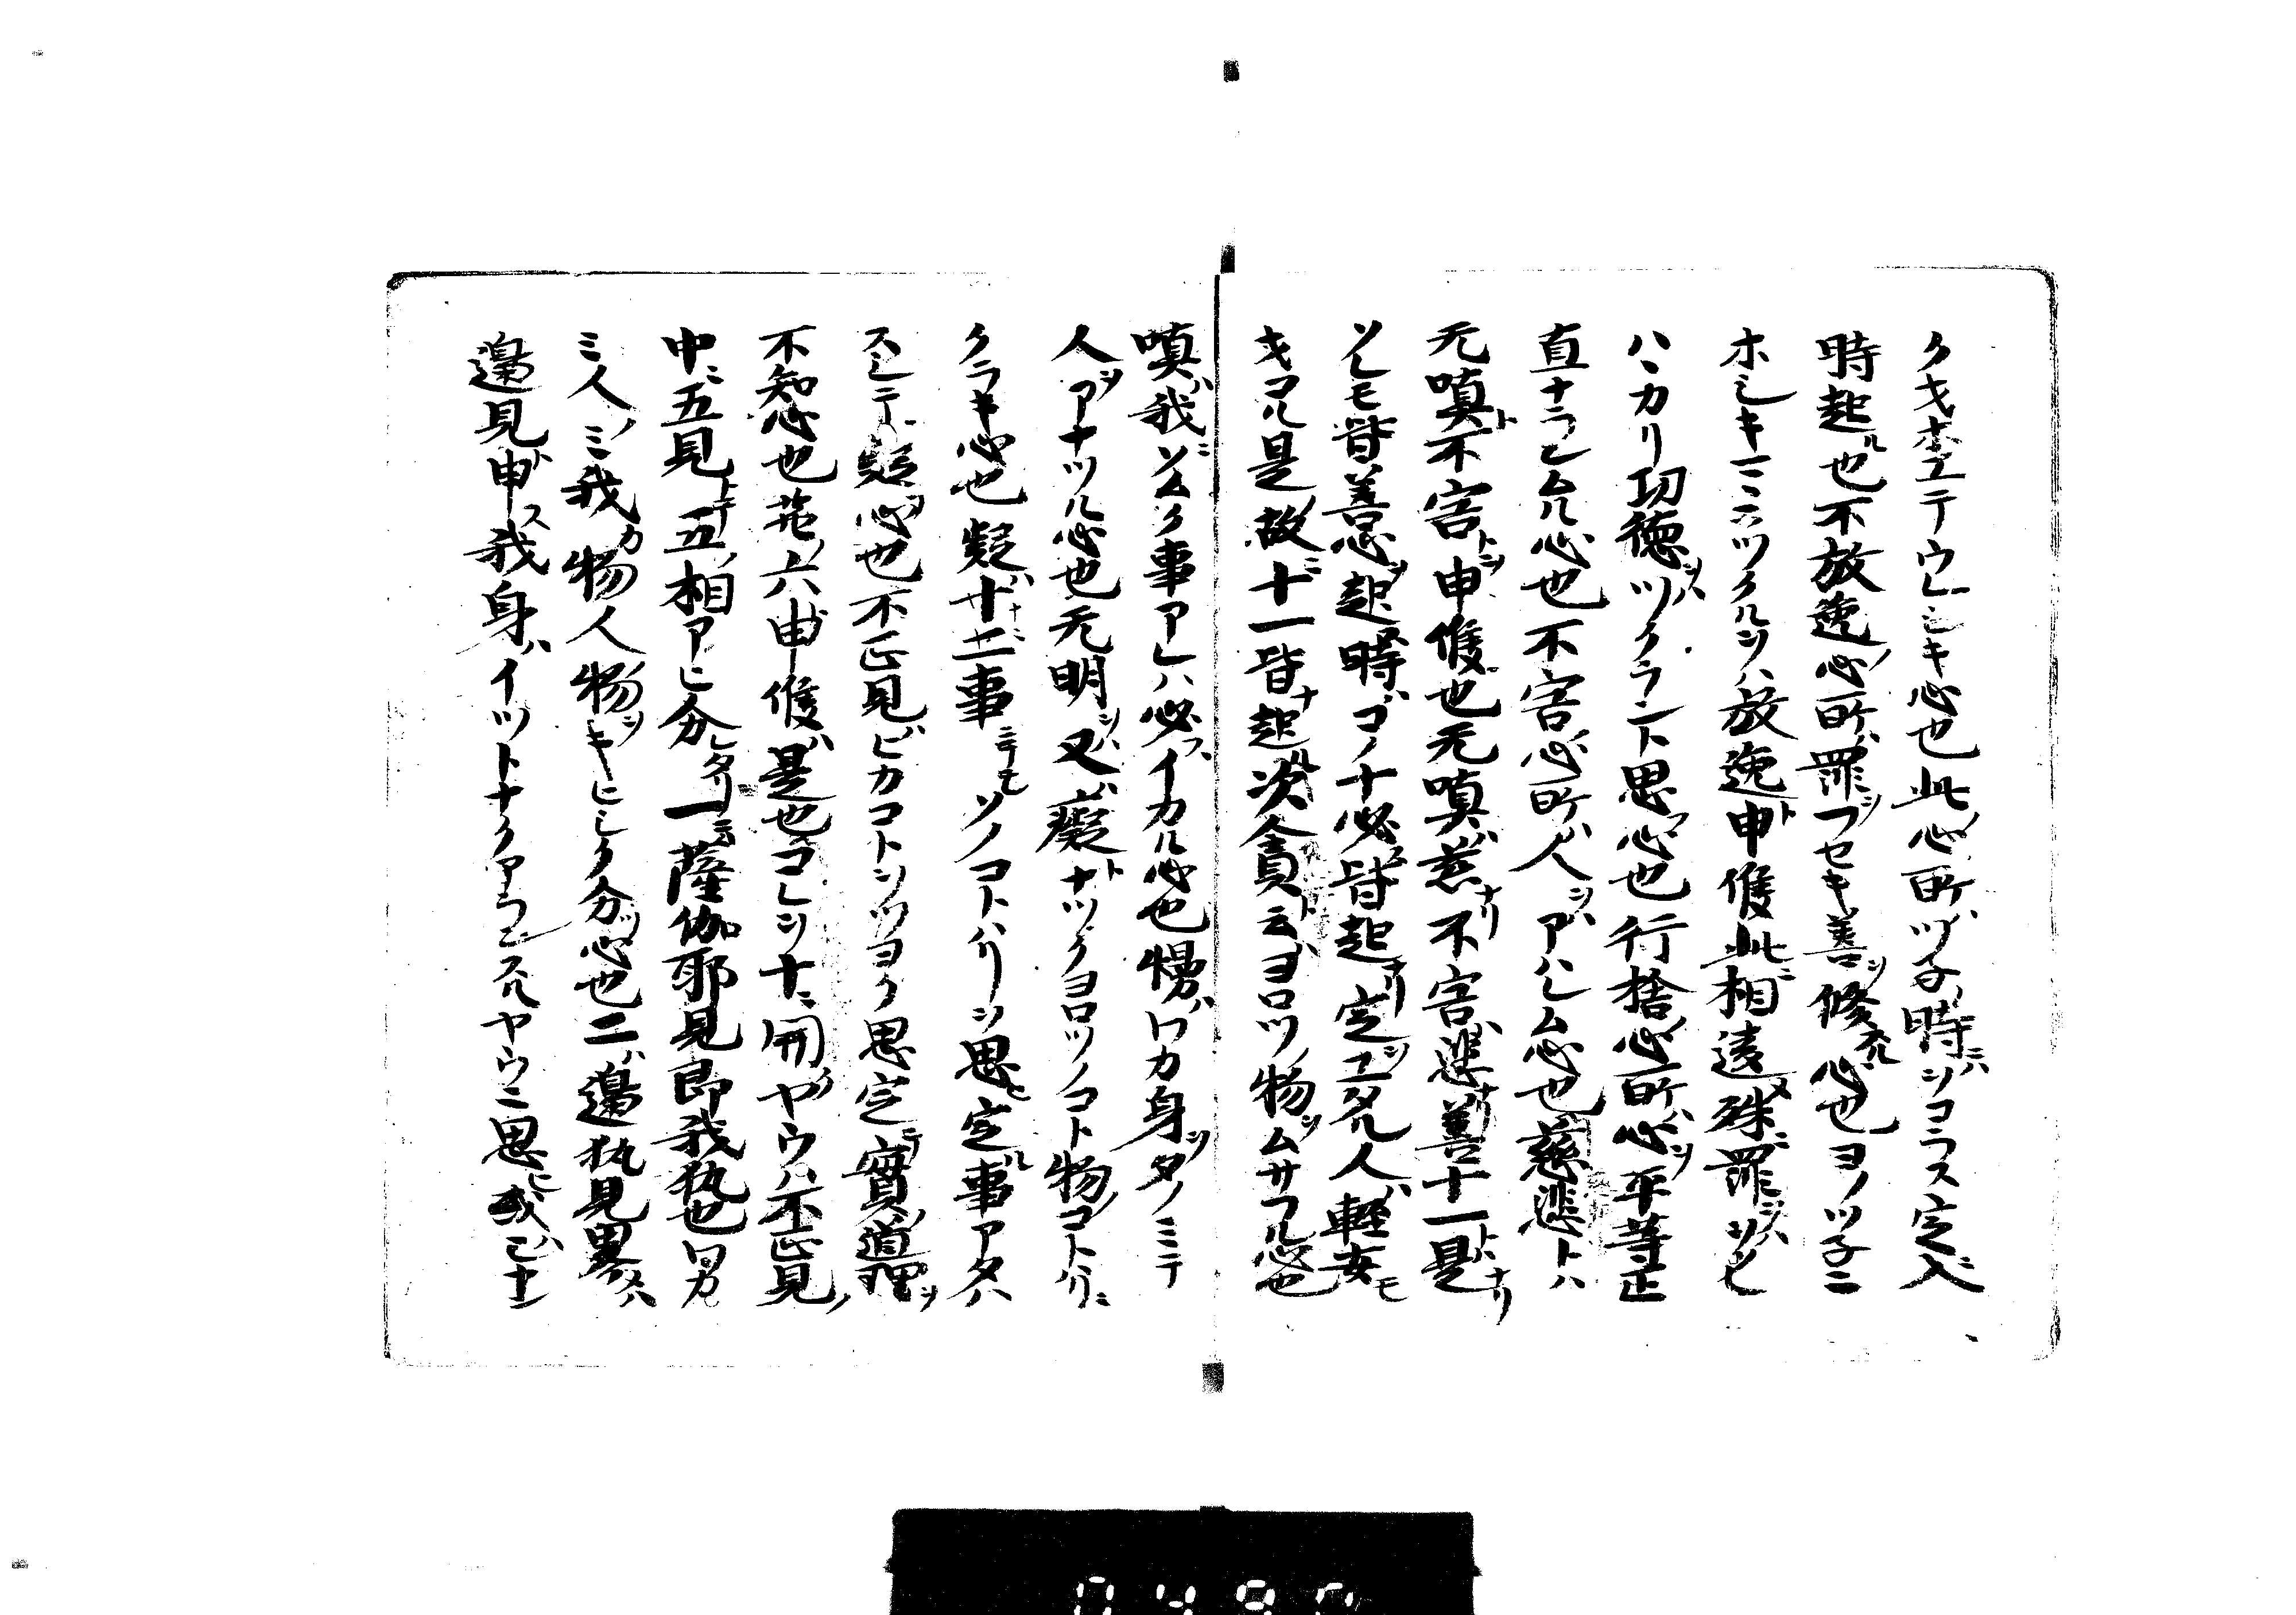 クキホエテウレシキ心也此ノ心所ハツ子ノ時ニハヲコラス定ニ入ル
時起ル也不放逸ノ心所ハ罪ヲフセキ善ヲ修スル心也ヨノツ子ニ
ホシキママニツクルヲハ放逸ト申候此ニ相違メ殊ニ罪ヲハソレ
ハハカリ功徳ヲハツクラント思フ心也行捨ノ心所ハ心ヲ平等正
直ナラシムル心也不害ノ心所ハ人ヲハアハレム心也慈悲トハ
无嗔ト不害トヲ申候也无嗔ハ慈ナリ不害ハ悲ナリ善十一ト是ナリ
ソレモ皆善心ヲ起ス時ハコノ十ハ必ス皆起ナリ定ヲエタル人ハ軽安モ
キコル是故ニ十一皆ナ起ル次ニ貪ト云ハヨロツノ物ヲムサフル心也
嗔ハ我ニソムク事アレハ必スイカル心也慢ハワカ身ヲタノミテ
人ヲアナツル心也无明ヲハ又ハ癡トナツクヨロツノコト物ノコトハリニ
クラキ心也疑ハ十二事ニテモソノコトハリヲ思ヒ定ル事アタハ
スシテ疑フ心也不正見ハヒカコトヲツヨク思定テ實ノ道理ヲ
不知心也花ノ六ト申候ハ是也コレヲ十ニ開クヤウハ不正見ノ
中ニ五見トテ五ノ相アヒ分レタリ一ニハ薩伽耶見即我執也ワカ
ミ人ノミ我カ物人ノ物ヲキヒシク分ツ心也二ハ邊執見畧メハ
邊見ト申ス我身ハイツトナクアラムスルヤウニ思ヒ或ハシ